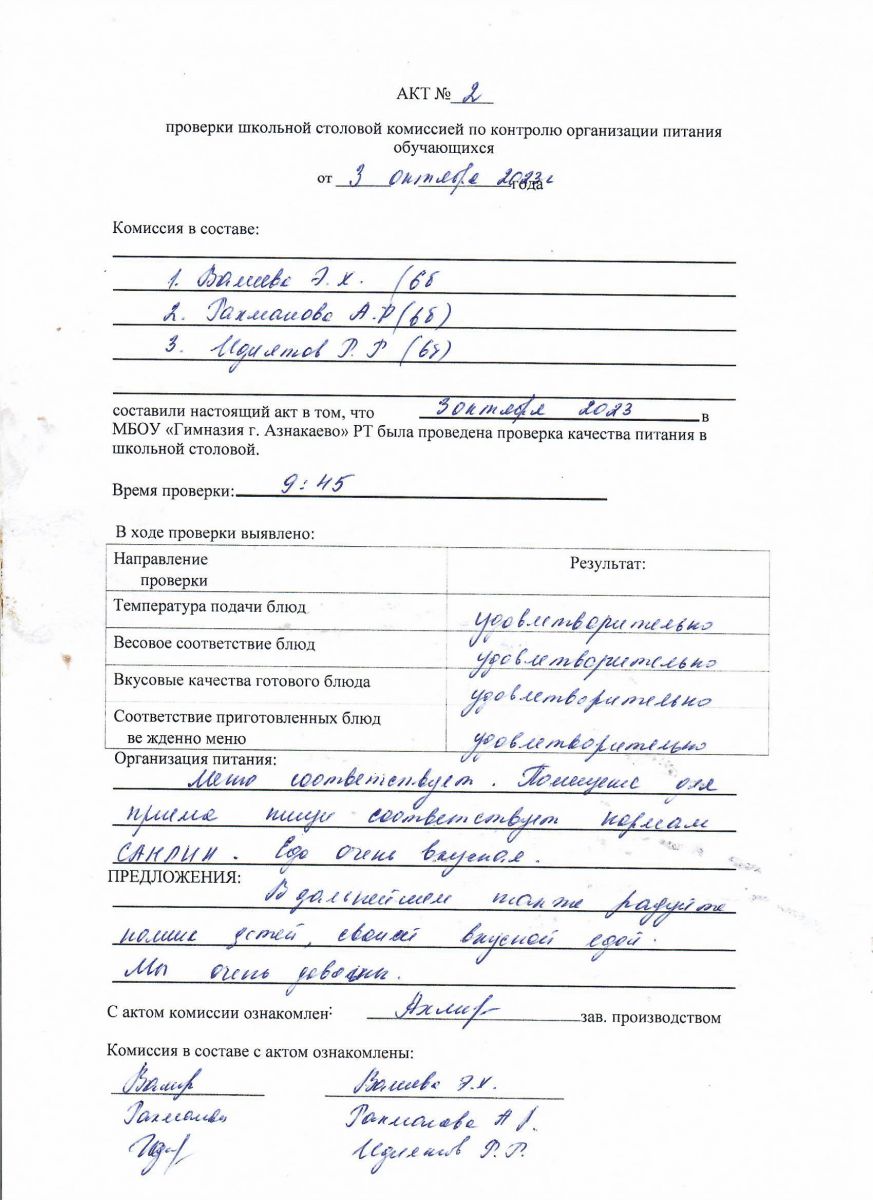 АКТ № 2
проверки школьной столовой комиссией по контролю организации питания
обучающихся
от 3 октября 2023 г года
Комиссия в составе:
1. Валиева Э.Х. (6б
2. Рахманова А.Р (6б)
3. Идиятов Р.Р (6б)
составили настоящий акт в том, что 3 октября 2023 в
МБОУ «Гимназия г. Азнакаево» РТ была проведена проверка качества питания в
школьной столовой.
Время проверки: 9:45
В ходе проверки выявлено:
Направление Результат:
проверки
Температура подачи блюд удовлетворительно
Весовое соответствие блюд удовлетворительно
Вкусовые качества готового блюда удовлетворительно
Соответствие приготовленных блюд
ве жденно меню удовлетворительно
Организация питания:
Меню соответствует. Помещение для
приема пищи соответствует нормам
САНПИН. Еда очень вкусная.
ПРЕДЛОЖЕНИЯ:
В дальнейшем также радуйте
наших детей, своей вкусной едой.
Мы очень довольны.
С актом комиссии ознакомлен: зав. производством
Комиссия в составе с актом ознакомлены:
Валиева Э.Х.
Рахманова Рахманова А Р.
Идиятов Р.Р.